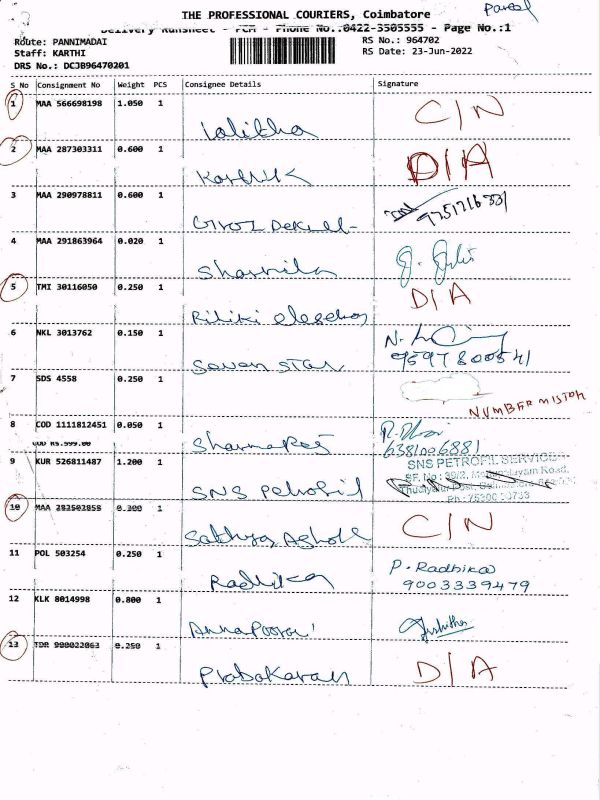 Parcel
THE PROFESSIONAL COURIERS, Coimbatore
Delivery Runsheet - PCM - Phone No.:0422-3505555 - Page No.:1
Route: PANNIMADAI
RS No.: 964702
Staff: KARTHI
RS Date: 23-Jun-2022
DRS No.: DCJB96470201
S No Consignment No Weight PCS Consignee Details Signature
1 MAA 566698198 1.050 1
Lalitha
C/N
2 MAA 287303311 0.600 1
Karthik
D/A
3 MAA 290978811 0.600 1
4 MAA 291863964 0.020 1
Sharmila
5 TMI 30116050 0.250 1
D/A
6 NKL 3013762 0.150 1
Seven Star
9597800541
7 SDS 4558 0.250 1
NUMBER MISTAK
8 COD 1111812451 0.050 1
COD RS.599.00
6381006881
9 KUR 526811487 1.200 1
SNS Petrofil
SNS PETROFIL SERVICE
10 MAA 282502858 0.300 1
Sathya Ashok
C/N
11 POL 503254 0.250 1
Radhika
P. Radhika
9003339479
12 KLK 8014998 0.800 1
Annapoorani
13 TDR 900022063 0.250 1
Prabakaran
D/A